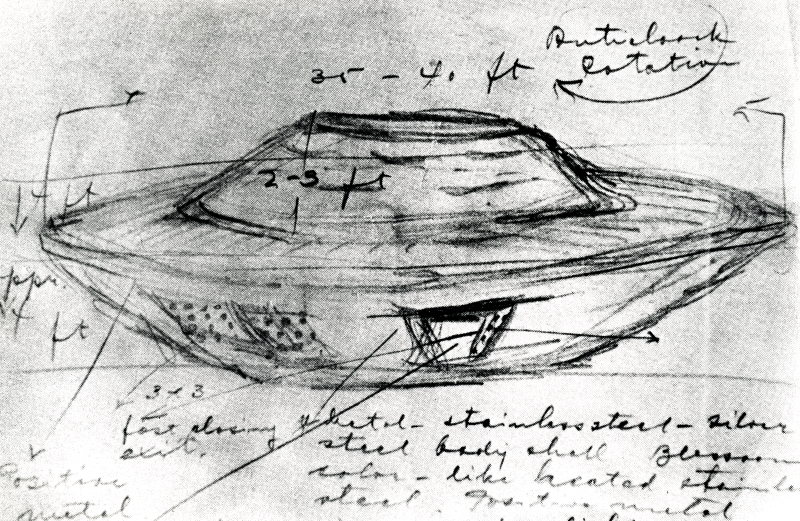 Anticlock
Rotation
35 - 40 ft
2-3 ft
4 ft
ppr.
4 ft
3x3
fast closing
exit.
metal - stainless steel - silver
steel body shell
color - like heated stainle
steel. Positive metal
Positive
metal